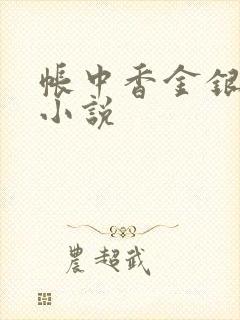 帳中香金銀
小說
農超武